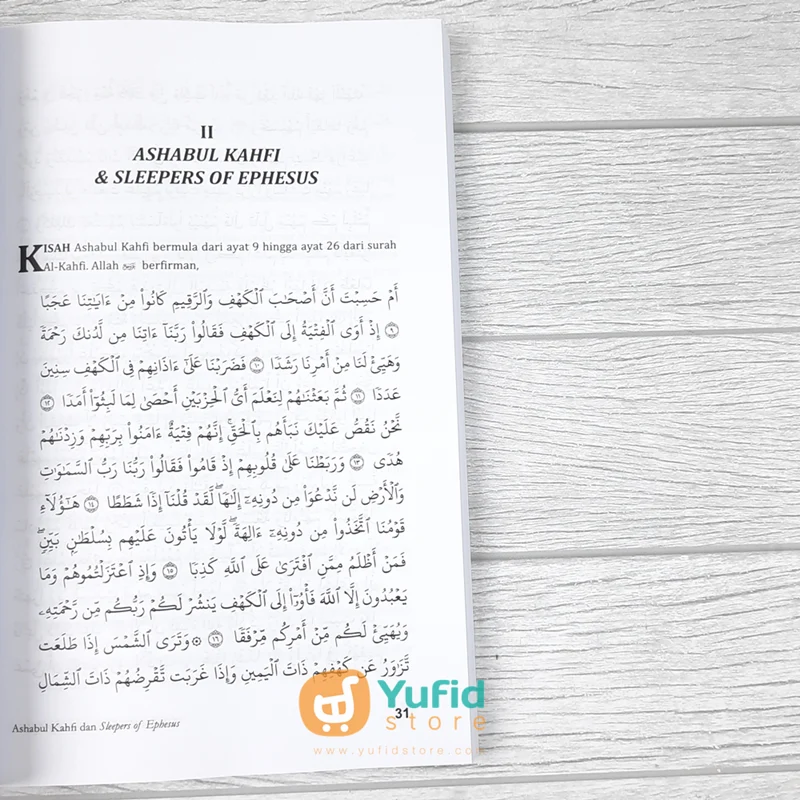 II
ASHABUL KAHFI
& SLEEPERS OF EPHESUS
KISAH Ashabul Kahfi bermula dari ayat 9 hingga ayat 26 dari surah
Al-Kahfi. Allah ﷻ berfirman,
أَمْ حَسِبْتَ أَنَّ أَصْحَٰبَ ٱلْكَهْفِ وَٱلرَّقِيمِ كَانُوا۟ مِنْ ءَايَٰتِنَا عَجَبًا
۝٩ إِذْ أَوَى ٱلْفِتْيَةُ إِلَى ٱلْكَهْفِ فَقَالُوا۟ رَبَّنَآ ءَاتِنَا مِن لَّدُنكَ رَحْمَةً
وَهَيِّئْ لَنَا مِنْ أَمْرِنَا رَشَدًا ۝١٠ فَضَرَبْنَا عَلَىٰٓ ءَاذَانِهِمْ فِى ٱلْكَهْفِ سِنِينَ
عَدَدًا ۝١١ ثُمَّ بَعَثْنَٰهُمْ لِنَعْلَمَ أَىُّ ٱلْحِزْبَيْنِ أَحْصَىٰ لِمَا لَبِثُوٓا۟ أَمَدًا ۝١٢
نَّحْنُ نَقُصُّ عَلَيْكَ نَبَأَهُم بِٱلْحَقِّ ۚ إِنَّهُمْ فِتْيَةٌ ءَامَنُوا۟ بِرَبِّهِمْ وَزِدْنَٰهُمْ
هُدًى ۝١٣ وَرَبَطْنَا عَلَىٰ قُلُوبِهِمْ إِذْ قَامُوا۟ فَقَالُوا۟ رَبُّنَا رَبُّ ٱلسَّمَٰوَٰتِ
وَٱلْأَرْضِ لَن نَّدْعُوَا۟ مِن دُونِهِۦٓ إِلَٰهًا ۖ لَّقَدْ قُلْنَآ إِذًا شَطَطًا ۝١٤ هَٰٓؤُلَآءِ
قَوْمُنَا ٱتَّخَذُوا۟ مِن دُونِهِۦٓ ءَالِهَةً ۖ لَّوْلَا يَأْتُونَ عَلَيْهِم بِسُلْطَٰنٍۭ بَيِّنٍ ۖ
فَمَنْ أَظْلَمُ مِمَّنِ ٱفْتَرَىٰ عَلَى ٱللَّهِ كَذِبًا ۝١٥ وَإِذِ ٱعْتَزَلْتُمُوهُمْ وَمَا
يَعْبُدُونَ إِلَّا ٱللَّهَ فَأْوُۥٓا۟ إِلَى ٱلْكَهْفِ يَنشُرْ لَكُمْ رَبُّكُم مِّن رَّحْمَتِهِۦ
وَيُهَيِّئْ لَكُم مِّنْ أَمْرِكُم مِّرْفَقًا ۝١٦ ۞ وَتَرَى ٱلشَّمْسَ إِذَا طَلَعَت
تَّزَٰوَرُ عَن كَهْفِهِمْ ذَاتَ ٱلْيَمِينِ وَإِذَا غَرَبَت تَّقْرِضُهُمْ ذَاتَ ٱلشِّمَالِ
Ashabul Kahfi dan Sleepers of Ephesus
31
Yufid
store
www.yufidstore.com